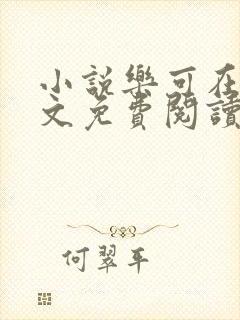 小說樂可在
文免費閱讀
何翠平